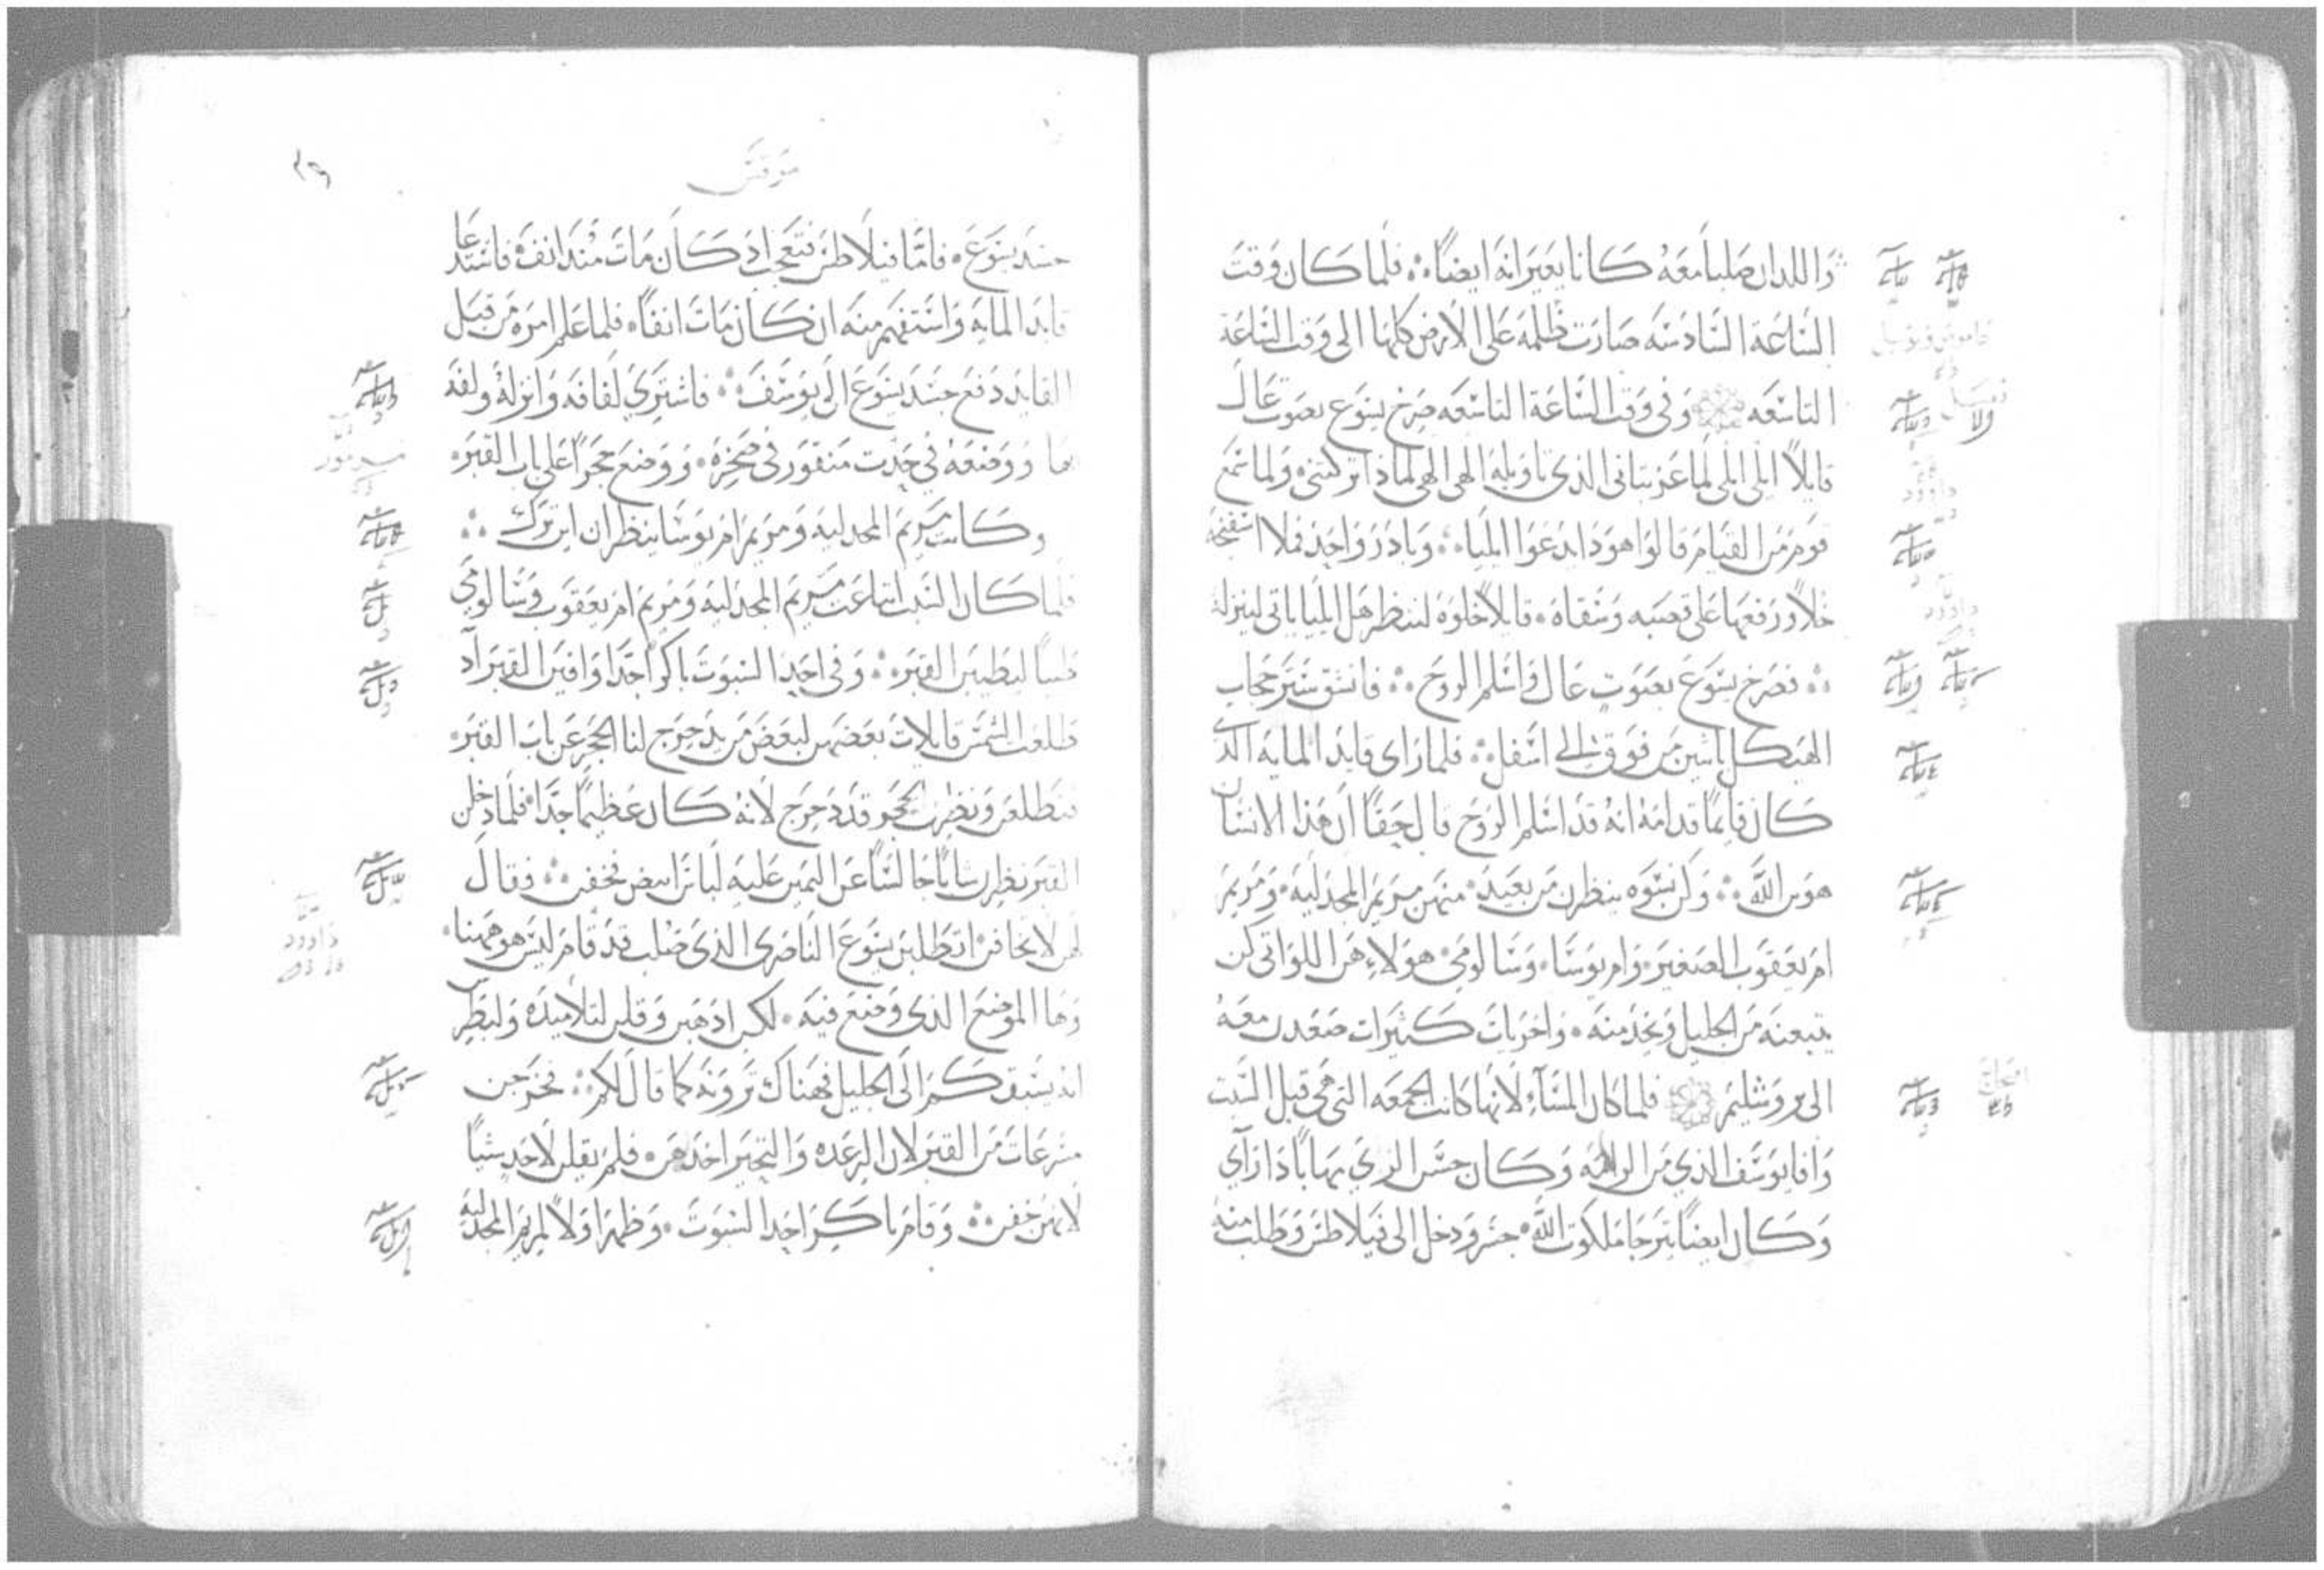 واللدان صلبا معه كانا يعيرانه ايضاً ፨ فلما كان وقت
الساعة السادسه صارت ظلمه على الارض كلها الى وقت الساعة
التاسعه وفي وقت الساعة التاسعه صرخ يسوع بصوت عال
قايلاً ايلي ايلي لما عزبتاني الذي تاويله الهي الهي لماذا تركتني ولما سمع
قوم من القيام قالوا هودا يدعوا ايليا وبادر واحد فملا اسفنجة
خلاً ورفعها على قصبه وسقاه قايلاً خلوه لننظر هل ايليا ياتي لينزله
فصرخ يسوع بصوت عال واسلم الروح فانشق ستر حجاب
الهيكل باثنين من فوق الى اسفل فلما راى قايد المايه الذي
كان قايماً قدامه انه قد اسلم الروح قال حقاً ان هذا الانسان
هو بن الله وكن نسوه ينظرن من بعيد منهن مريم المجدليه ومريم
ام يعقوب الصغير وام يوسا وسالومي هولاء هن اللواتي كن
يتبعنه من الجليل ويخدمنه واخريات كثيرات صعدن معه
الى يروشليم فلما كان المسآء لانها كانت الجمعه التي هي قبل السبت
وافا يوسف الذي من الرامه وكان حسن الزي مهاباً ذا راي
وكان ايضاً يترجا ملكوت الله جسر ودخل الى فيلاطس وطلب منه
مرقس
جسد يسوع فاما فيلاطس فتعجب اد كان مات مند انفه فاستدعا
قايد المايه واستفهم منه ان كان مات انفاً فلما علم امره من قبل
القايد دفع جسد يسوع الى يوسف فاشتري لفافه وانزله ولفه
بها ووضعه في جدث منقور في صخره ووضع حجراً على باب القبر
وكانت مريم المجدليه ومريم ام يوسا ينظران اين ترك
فلما كان السبت ابتاعت مريم المجدليه ومريم ام يعقوب وسالومي
طيباً ليطيبن القبر وفي احد السبوت باكراً جداً وافين القبر اد
طلعت الشمس قايلات بعضهن لبعض من يدحرج لنا الحجر عن باب القبر
فتطلعن ونظرن الحجر قد دحرج لانه كان عظيماً جداً فلما دخلن
القبر نظرن شاباً جالساً عن اليمين عليه لباس ابيض فخفن فقال
لهن لا تخافن اتطلبن يسوع الناصري الذي صلب قد قام ليس هو ههنا
وها الموضع الذي وضع فيه لكن ادهبن وقلن لتلاميده ولبطرس
انه يسبقكم الى الجليل فهناك ترونه كما قال لكم فخرجن
مسرعات من القبر لان الرعده والتحير اخدهن فلم يقلن لاحد شياً
لانهن خفن وقام باكر احد السبوت وظهر اولاً لمريم المجدليه